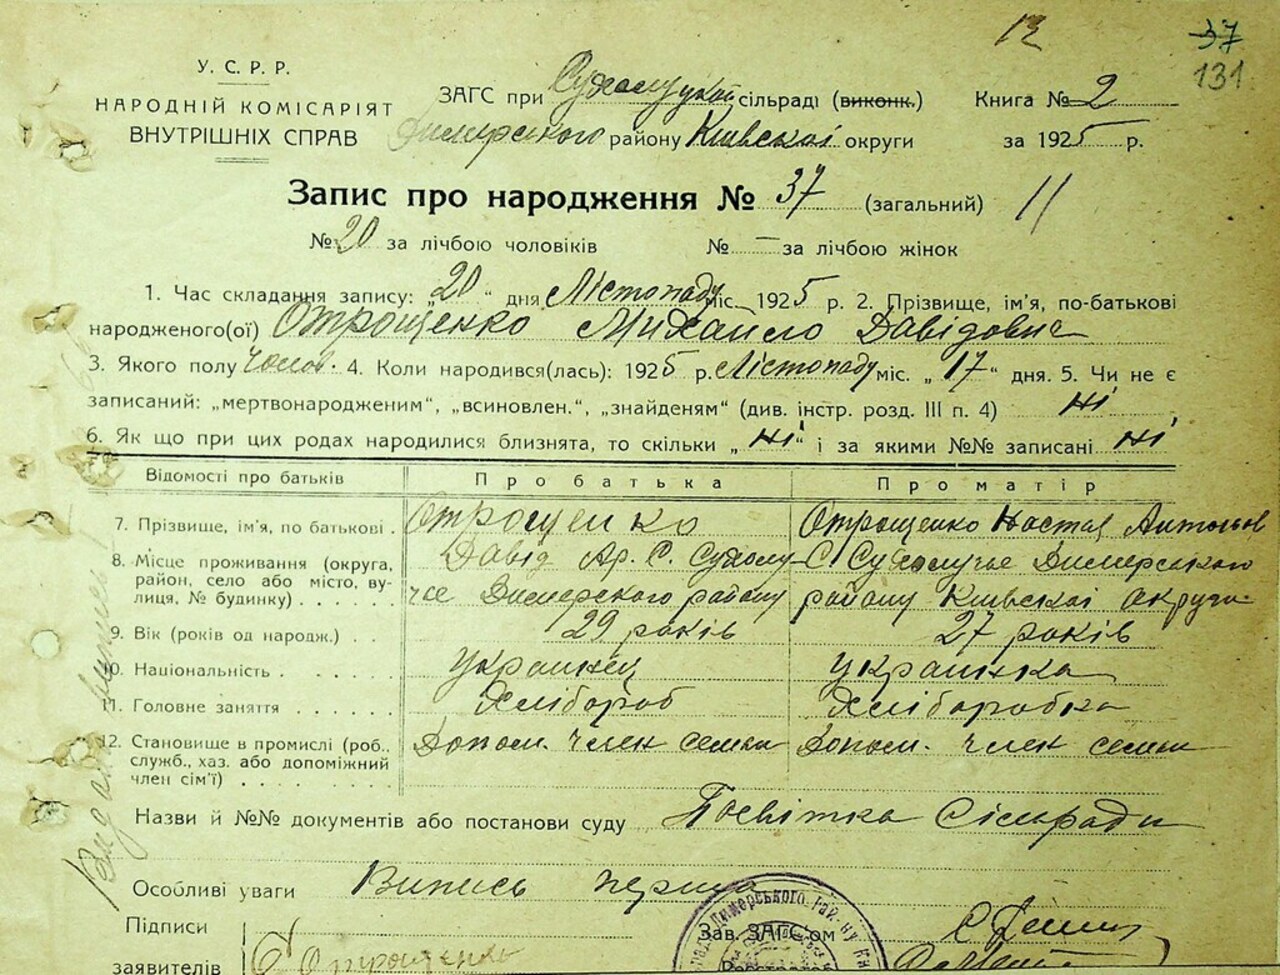 12 37
131
У. С. Р. Р.
НАРОДНІЙ КОМІСАРІЯТ
ВНУТРІШНІХ СПРАВ
ЗАГС при Сухолуцкой сільраді (виконк.) Книга № 2
Димерського району Київскоі округи за 1925 р.
Запис про народження № 37 (загальний) 11
№ 20 за лічбою чоловіків № — за лічбою жінок
1. Час складання запису: „20“ дня Лістопаду міс. 1925 р. 2. Прізвище, ім'я, по-батькові
народженого(ої) Отрощенко Михайло Давідович
3. Якого полу Чолов. 4. Коли народився(лась): 1925 р. Лістопаду міс. „17“ дня. 5. Чи не є
записаний: „мертвонародженим“, „всиновлен.“, „знайденям“ (див. інстр. розд. III п. 4) Ні
6. Як що при цих родах народилися близнята, то скільки „Ні“ і за якими №№ записані Ні
Відомості про батьків Про батька Про матір
7. Прізвище, ім'я, по батькові. Отрощенко Отрощенко Настя Антонов
8. Місце проживання (округа, Давід Ар. С. Сухолу- С Сухолучье Димерського
район, село або місто, вулиця, № будинку) чье Димерского району району Київскоі округи
9. Вік (років од народж.) 29 років 27 років
10. Національність українец українка
11. Головне заняття Хлібороб Хліборобка
12. Становище в промислі (роб., Допом. член семьи Допом. член семьи
служб., хаз. або допоміжний
член сім'ї)
Назви й №№ документів або постанови суду Посвітка Сільради
Видан випись
Особливі уваги Випись перша
Підписи Зав. ЗАГС'ом
заявителів Отрощенко
Димерського рай-ну